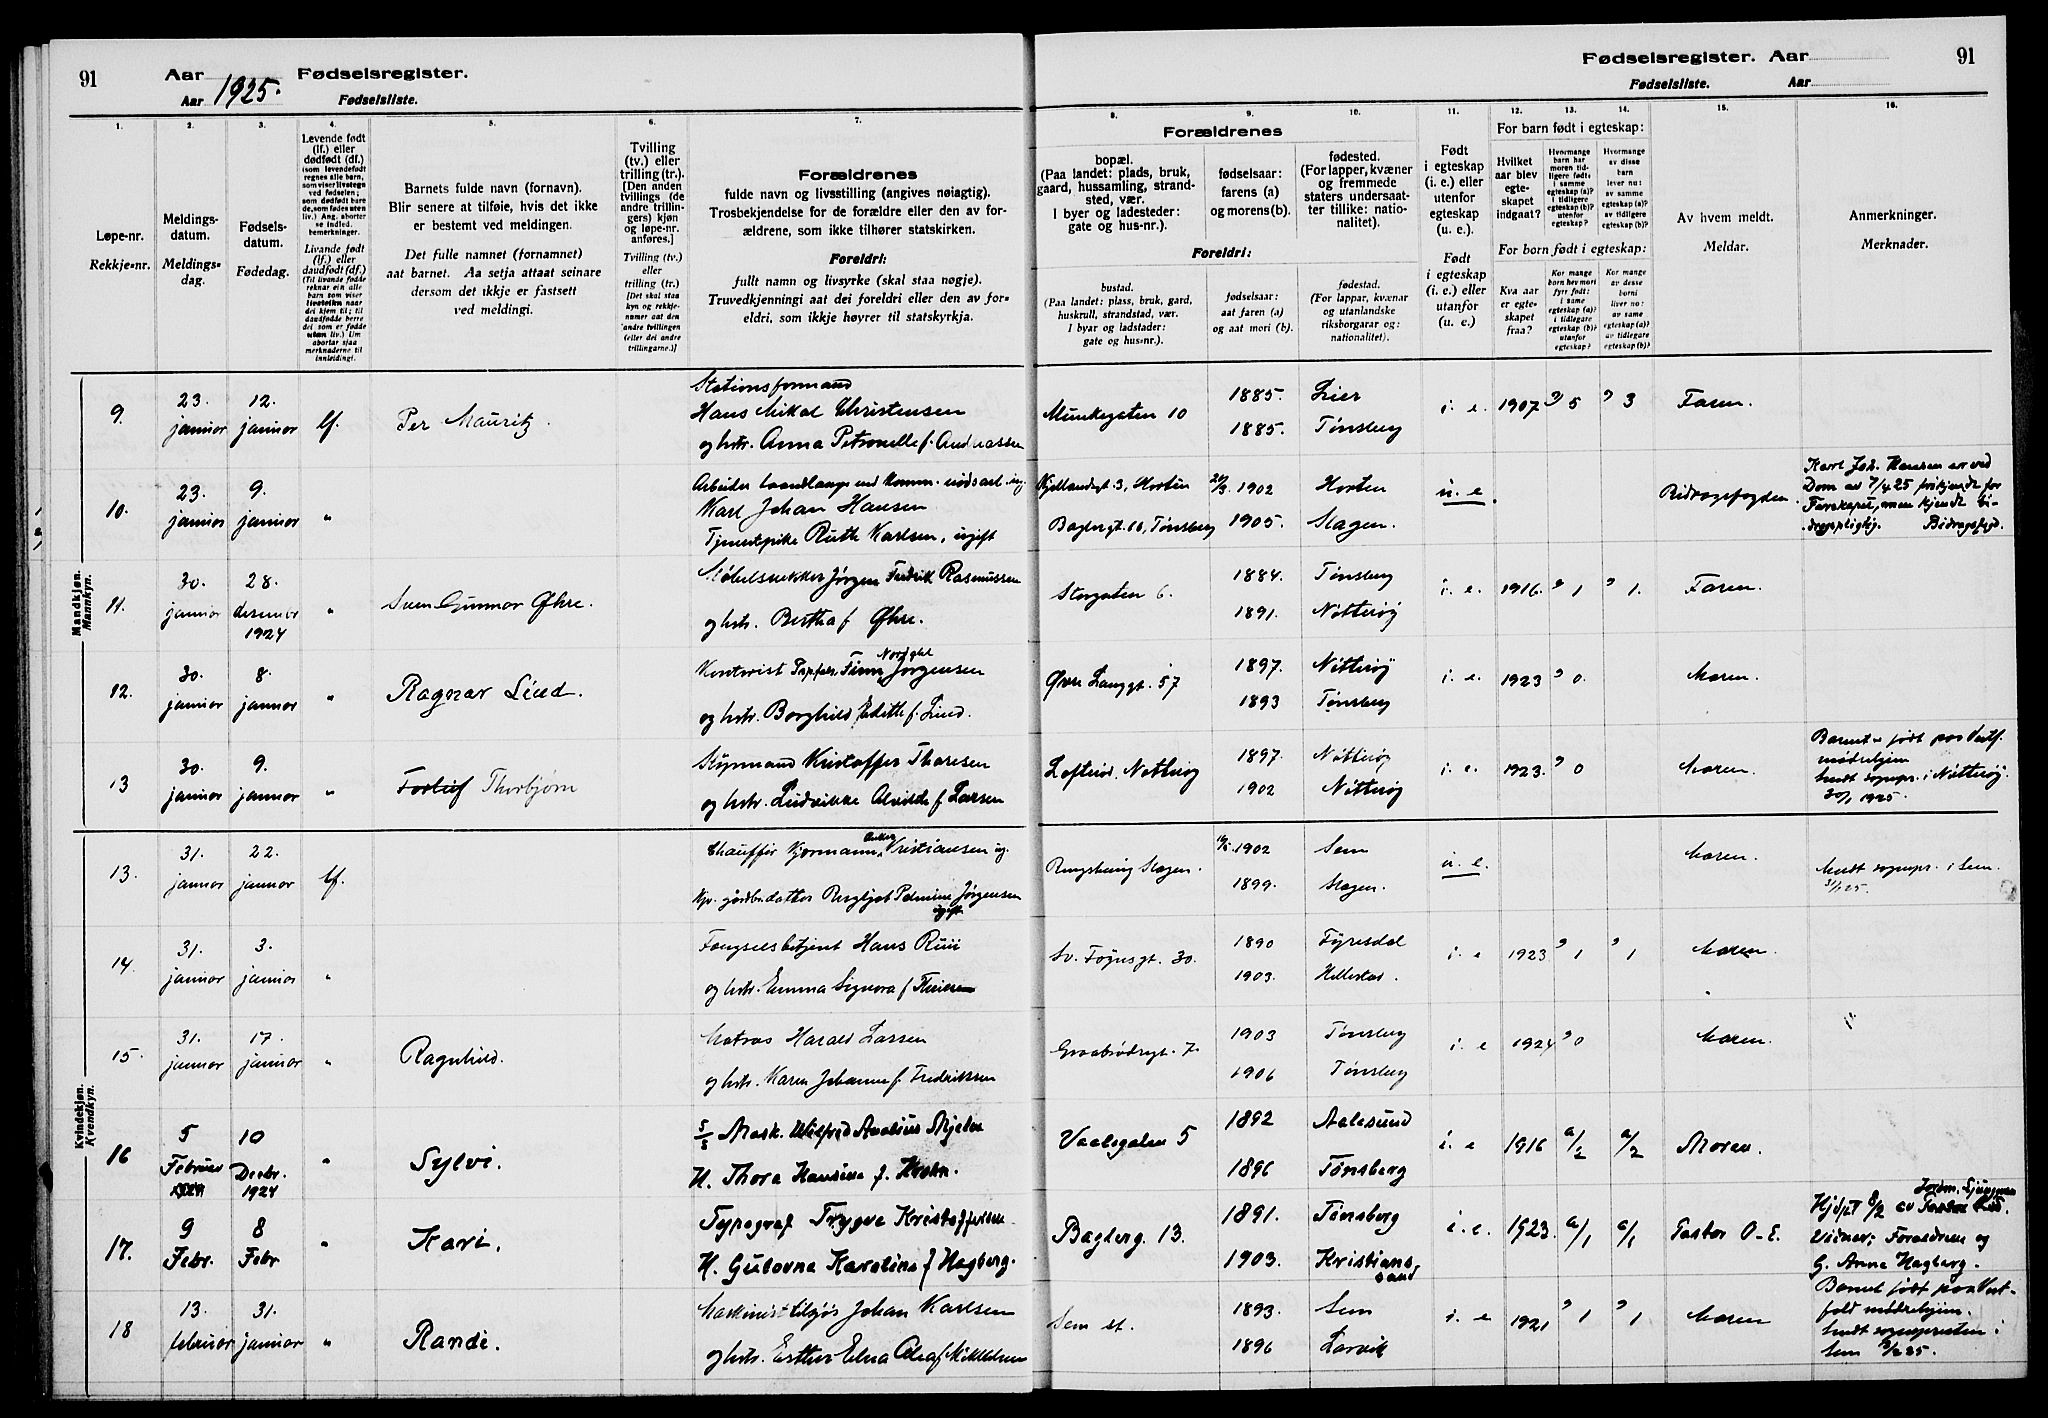 91 Aar 1925. Fødselsregister.
Aar Fødselsliste.
Fødselsregister. Aar 91
Fødselsliste. Aar
1. 2. 3. 4. 5. 6. 7. 8. 9. 10. 11. 12. 13. 14. 15. 16.
Løpe-nr.
Rekkje-nr.
Meldings-
datum.
Meldings-
dag.
Fødsels-
datum.
Fødedag.
Levende født
(lf.) eller
dødfødt (df.)
(som levendefødt
regnes alle barn,
som viser livstegn
ved fødselen;
som dødfødt bare
de, som fødes uten
liv.) Ang. aborter
se indled.
bemerkninger.
Livande født
(lf.) eller
daudfødt (df.)
(Til livande fødde
reknar ein alle
barn som viser
livsteikn naar
dei kjem til; til
daudfødde berre
dei som er fødde
utan liv.) Um
abortar sjaa
merknaderne til
innleidingi.
Barnets fulde navn (fornavn).
Blir senere at tilføie, hvis det ikke
er bestemt ved meldingen.
Det fulle namnet (fornamnet)
aat barnet. Aa setja attaat seinare
dersom det ikkje er fastsett
ved meldingi.
Tvilling
(tv.) eller
trilling (tr.).
[Den anden
tvillings (de
andre trillin-
gers) kjøn
og løpe-nr.
anføres.]
Tvilling (tv.)
eller
trilling (tr.)
[Det skal staa
kyn og rekkje-
numer aat den
andre tvillingen
(eller dei andre
trillingarne.)]
Forældrenes
fulde navn og livsstilling (angives nøiagtig).
Trosbekjendelse for de forældre eller den av for-
ældrene, som ikke tilhører statskirken.
Foreldri:
fullt namn og livsyrke (skal staa nøgje).
Truvedkjenningi aat dei foreldri eller den av for-
eldri, som ikkje høyrer til statskyrkja.
Forældrenes
bopæl.
(Paa landet: plads, bruk,
gaard, hussamling, strand-
sted, vær.
I byer og ladesteder:
gate og hus-nr.).
fødselsaar:
farens (a)
og morens (b).
fødested.
(For lapper, kvæner
og fremmede
staters undersaat-
ter tillike: natio-
nalitet).
Foreldri:
bustad.
(Paa landet: plass, bruk, gard,
huskrull, strandstad, vær.
I byar og ladstader:
gate og hus-nr.).
fødselsaar:
aat faren (a)
og aat mori (b).
fødestad.
(For lappar, kvænar
og utanlandske
riksborgarar og:
nationalitet).
Født
i egteskap
(i. e.) eller
utenfor
egteskap
(u. e.).
Født
i egteskap
(i. e.) eller
utanfor
(u. e.)
For barn født i egteskap:
Hvilket
aar blev
egte-
skapet
indgaat?
Hvormange
barn har
moren tid-
ligere født:
i samme
egteskap (a)?
i tidligere
egteskap (b)?
utenfor
egteskap?
Hvormange
av disse
barn
lever nu:
av samme
egteskap (a)?
av tidligere
egteskap (b)?
For born født i egteskap:
Kva aar
er egte-
skapet
fraa?
Kor mange
barn hev mori
fyrr født:
i same
egteskap (a)?
i tidlegare
egteskap (b)?
utanfor
egteskap?
Kor mange
av desse
borni
liver no:
av same
egteskap (a)?
av tidlegare
egteskap (b)?
Av hvem meldt.
Meldar.
Anmerkninger.
Merknader.
Mandkjøn.
Mannkyn.
9. 23. januar 12. januar lf. Per Mauritz.
Stationsformand
Hans Mikal Christensen
og hstr. Anna Petronelle f. Andreassen
Munkegaten 10 1885. Lier i. e. 1907 5 3 Faren.
1885. Tønsberg
10. 23. januar 9. januar "
Arbeider
Karl Johan Hansen
Tjenestpike Ruth Karlsen, ugift
Kjellandsgt. 3, Horten 1902 Horten u. e. Bidragsfogden
Baglergt. 10, Tønsberg 1905. Slagen.
Karl Joh. Hansen er ved
Dom av 7/4 25 frikjendt for
Farskapet, men kjendt bi-
dragspligtig. Bidragsfogd.
11. 30. januar 28. desember 1924 " Sven Gunnar Øhre.
Møbelsnekker Jørgen Fredrik Rasmussen
og hstr. Bertha f. Øhre.
Storgaten 6. 1884. Tønsberg i. e. 1916. 1 1. Faren.
1891. Nøtterøy
12. 30. januar 8. januar " Ragnar Lind.
Kontorist Finn Jørgensen
og hstr. Borghild Edith f. Lind.
Øvre Langgt. 57 1897. Nøtterøy i. e. 1923 0. Moren.
1893 Tønsberg
13 30. januar 9. januar " Thorbjørn
Styrmand Kristoffer Thoresen
og hstr. Ludvikke Alvilde f. Larsen
Nøtterøy 1897. Nøtterøy i. e. 1923. 0 Moren.
1902 Nøtterøy
Barnet født paa Vestf.
mødrehjem
Sendt sognepr. i Nøtterøy
30/1 1925.
Kvindekjøn.
Kvendkyn.
13. 31. januar 22. januar lf.
Chauffør Hjørmann Kristiansen ug.
gårdbr.datter Bergljot Petrine Jørgensen
ugift
Ringshaug Slagen. 1902 Sem u. e. Moren.
1899. Slagen.
Sendt sognepr. i Sem.
31/1 25.
14. 31. januar 3. januar "
Fængselsbetjent Hans Ruii
og hstr. Emma Signora f.
Sv. Føynsgt. 30. 1890 Fyresdal i. e 1923 1 1 Moren.
1903.
15. 31. januar 17. januar " Ragnhild.
Matros Harald Larsen
og hstr. Karen Johanne f. Fredriksen
Graabrødregt. 7. 1903 Tønsberg i. e 1924 0 Moren.
1906 Tønsberg
16 5 Februar 10 Decbr. 1924 " Sylvi.
Mask. Wilfred Analius
H. Thora Hansine f. Krohn.
5 1892 Aalesund i. e 1916 a/2 a/2 Moren.
1896 Tønsberg
17. 9 Febr. 8 Febr " Kari.
Typograf Trygve Kristoffersen
H. Gulovna Karoline f Hagberg.
Baglerg. 13. 1891. Tønsberg i. e. 1923. a/1 a/1 Pastor O-E.
1903. Kristians-
sand
Jordm. Ljungman
Hjdøpt 8/2 av
Vidner: Forældrene og
G. Anna Hagberg.
18 13. februar 31. januar " Randi.
Maskinist tilsjøs Johan Karlsen
og hstr. Esther Edna f. Mikkelsen
Sem st. 1893. Sem i. e 1921 1 1 Moren
1896 Larvik
Barnet født paa Vest-
fold mødrehjem.
Sendt sognepresten i
Sem /2 25.